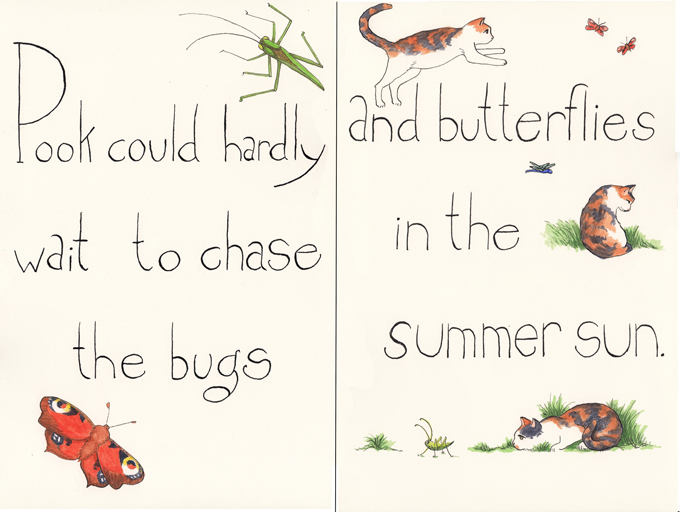 Pook could hardly
wait to chase
the bugs
and butterflies
in the
summer sun.